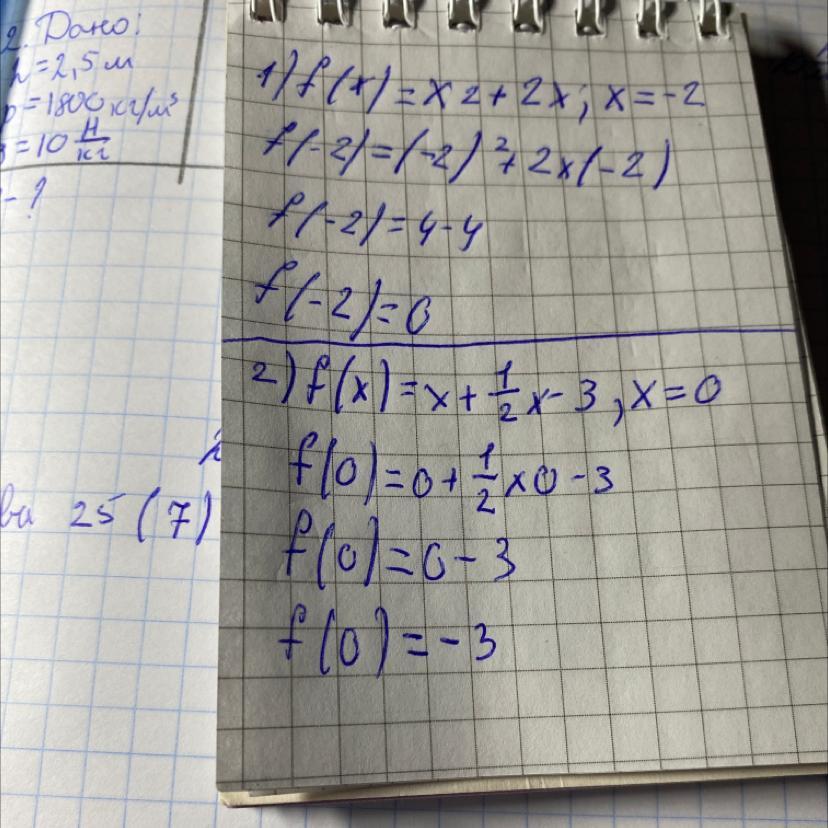 2. Дано:
h=2,5 м
p=1800 кг/м³
=10 Н/кг
- ?
25 (7)
1) f(x)=x2+2x; x=-2
f(-2)=(-2)²+2x(-2)
f(-2)=4-4
f(-2)=0
2) f(x)=x+1/2x-3, x=0
f(0)=0+1/2x0-3
f(0)=0-3
f(0)=-3